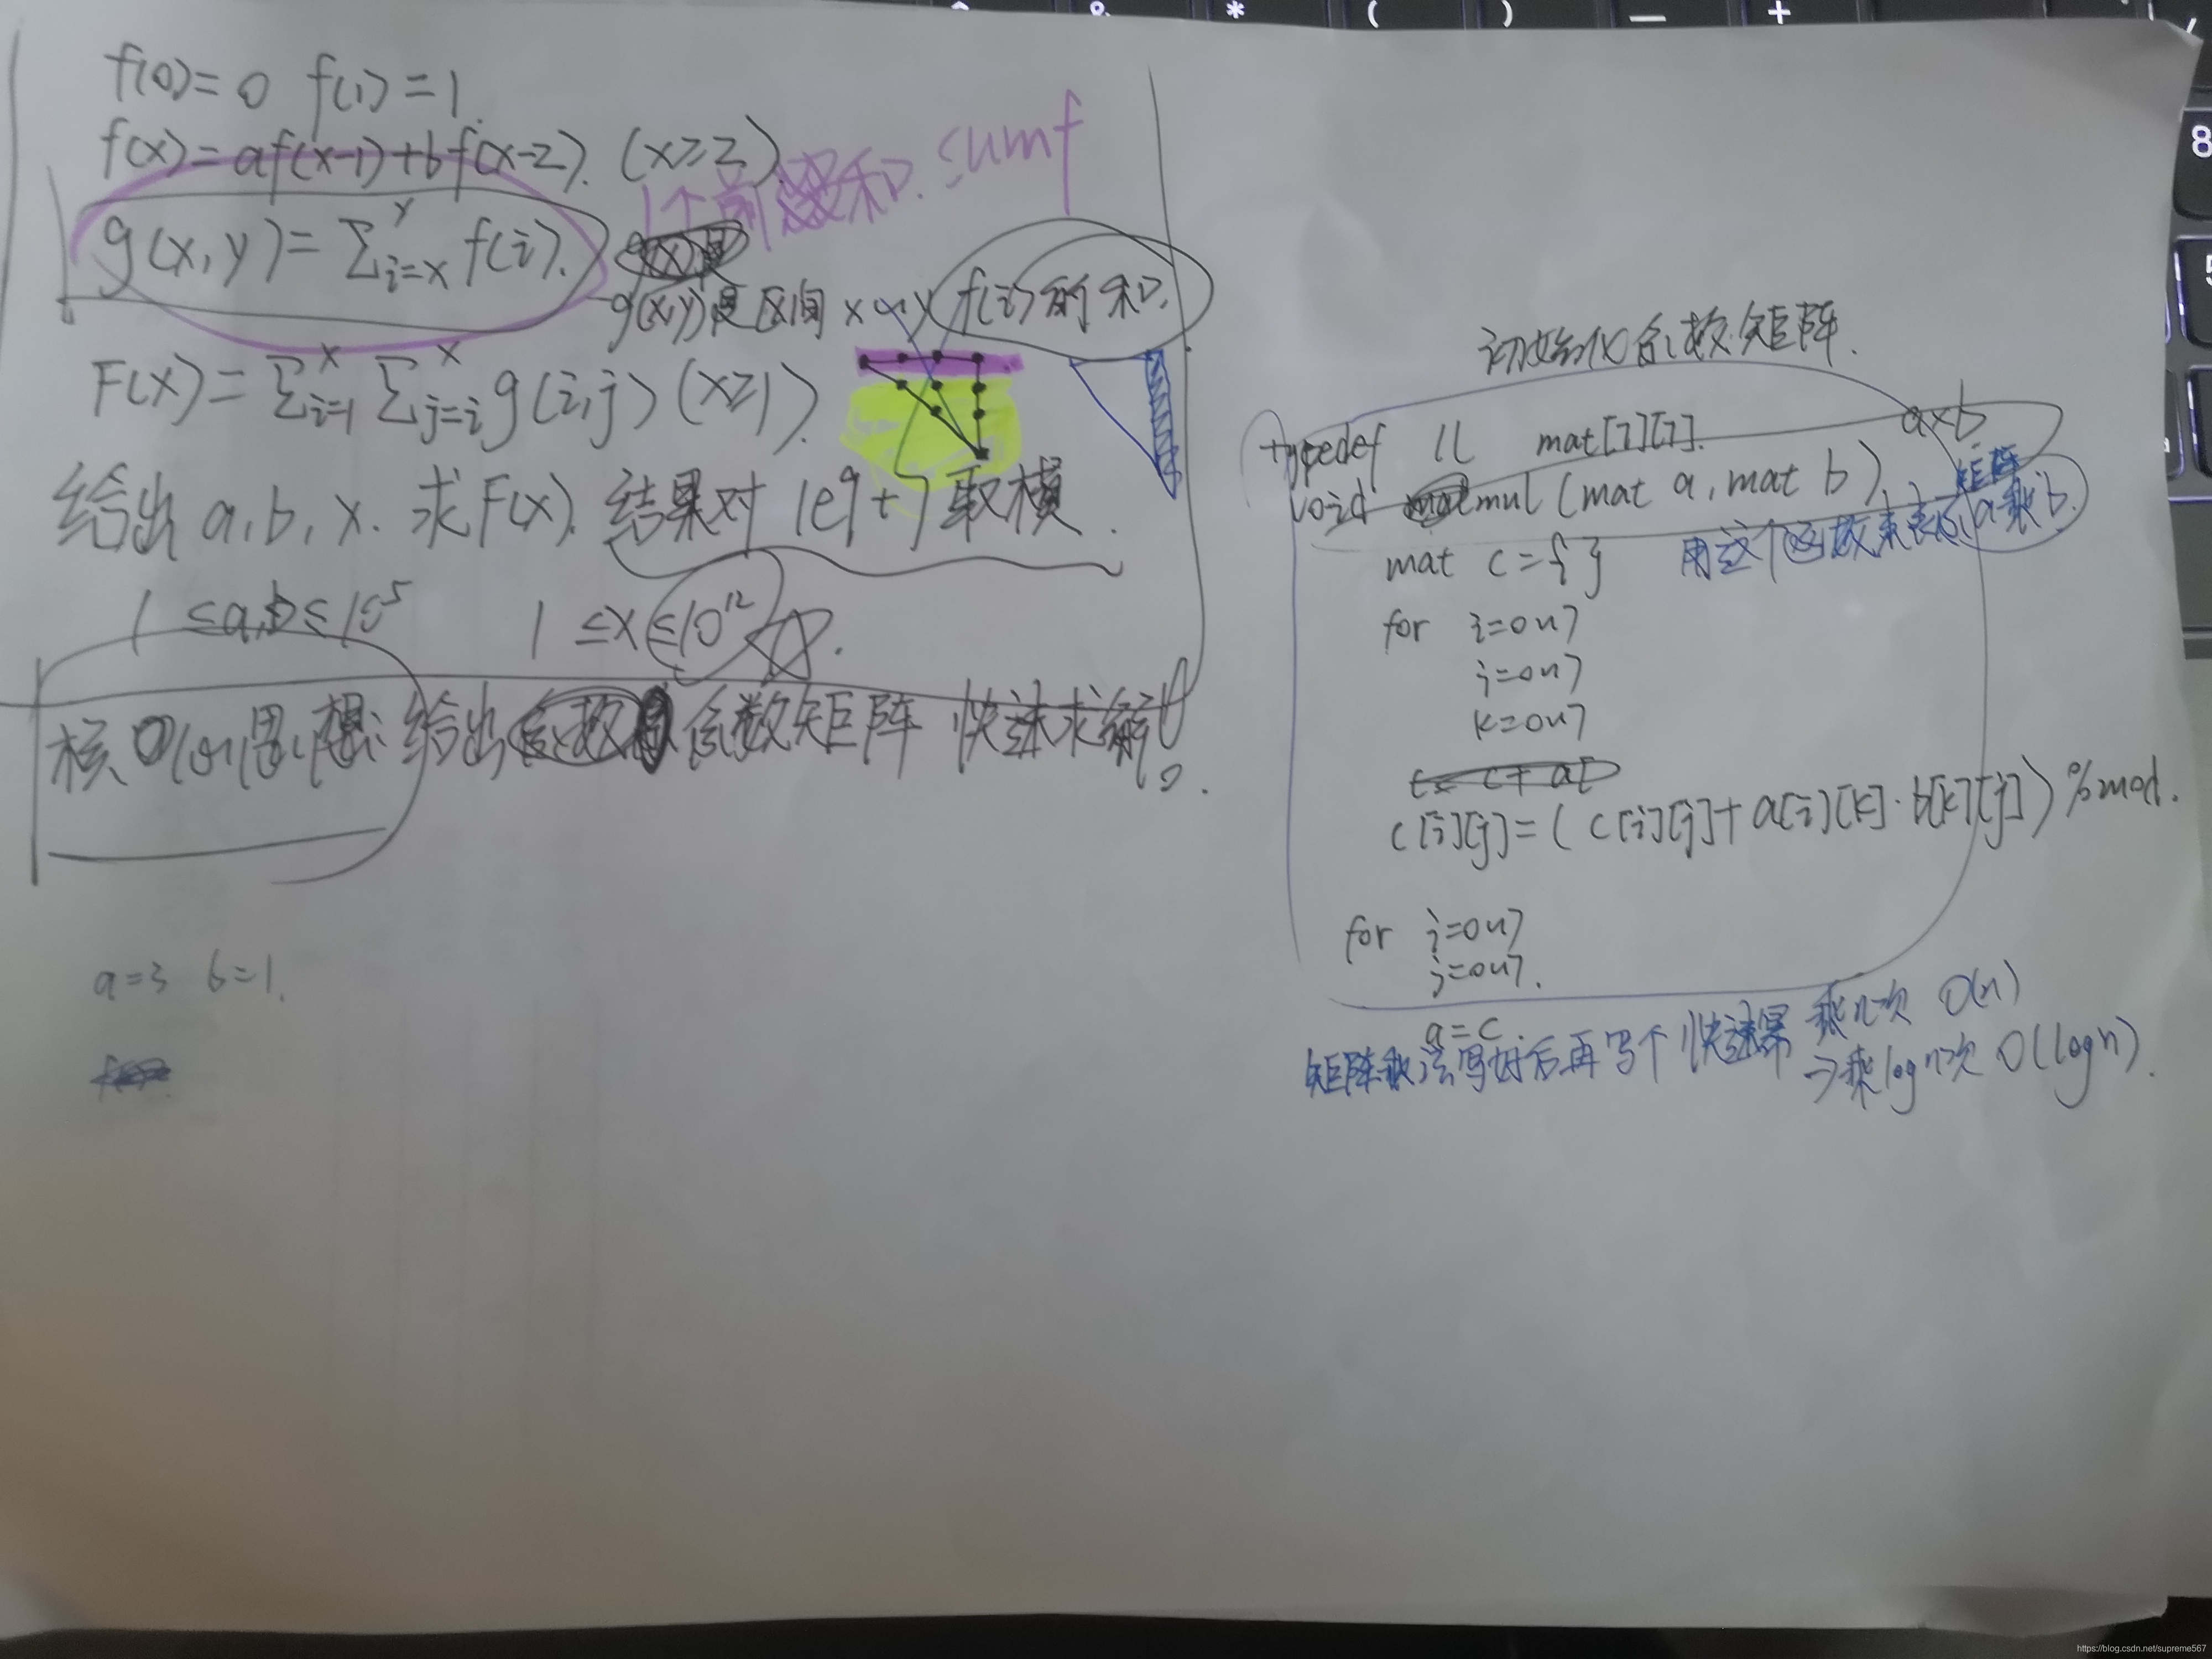 f(0)=0 f(1)=1.
f(x)=af(x-1)+bf(x-2). (x≥2)
1个前缀和. sumf
g(x,y)=Σ_{i=x}^{y} f(i).
g(x,y)是区间x~y f(i)的和.
F(x)=Σ_{i=1}^{x} Σ_{j=i}^{x} g(i,j) (x≥1).
给出a,b,x. 求F(x). 结果对1e9+7取模.
1≤a,b≤10^5 1≤x≤10^12.
核心思想: 给出系数矩阵 快速求解。
a=3 b=1.
初始化系数矩阵.
a×b
typedef ll mat[7][7].
void mul(mat a, mat b) {
矩阵
用这个函数来表示 a乘b.
mat c={}
for i=0~7
j=0~7
k=0~7
c[i][j]=(c[i][j]+a[i][k]·b[k][j])%mod.
for i=0~7
j=0~7.
a=c.
矩阵乘法写好后再写个快速幂 乘n次 O(n)
→乘logn次 O(logn).
* ( ) — +
8
5
https://blog.csdn.net/supreme567